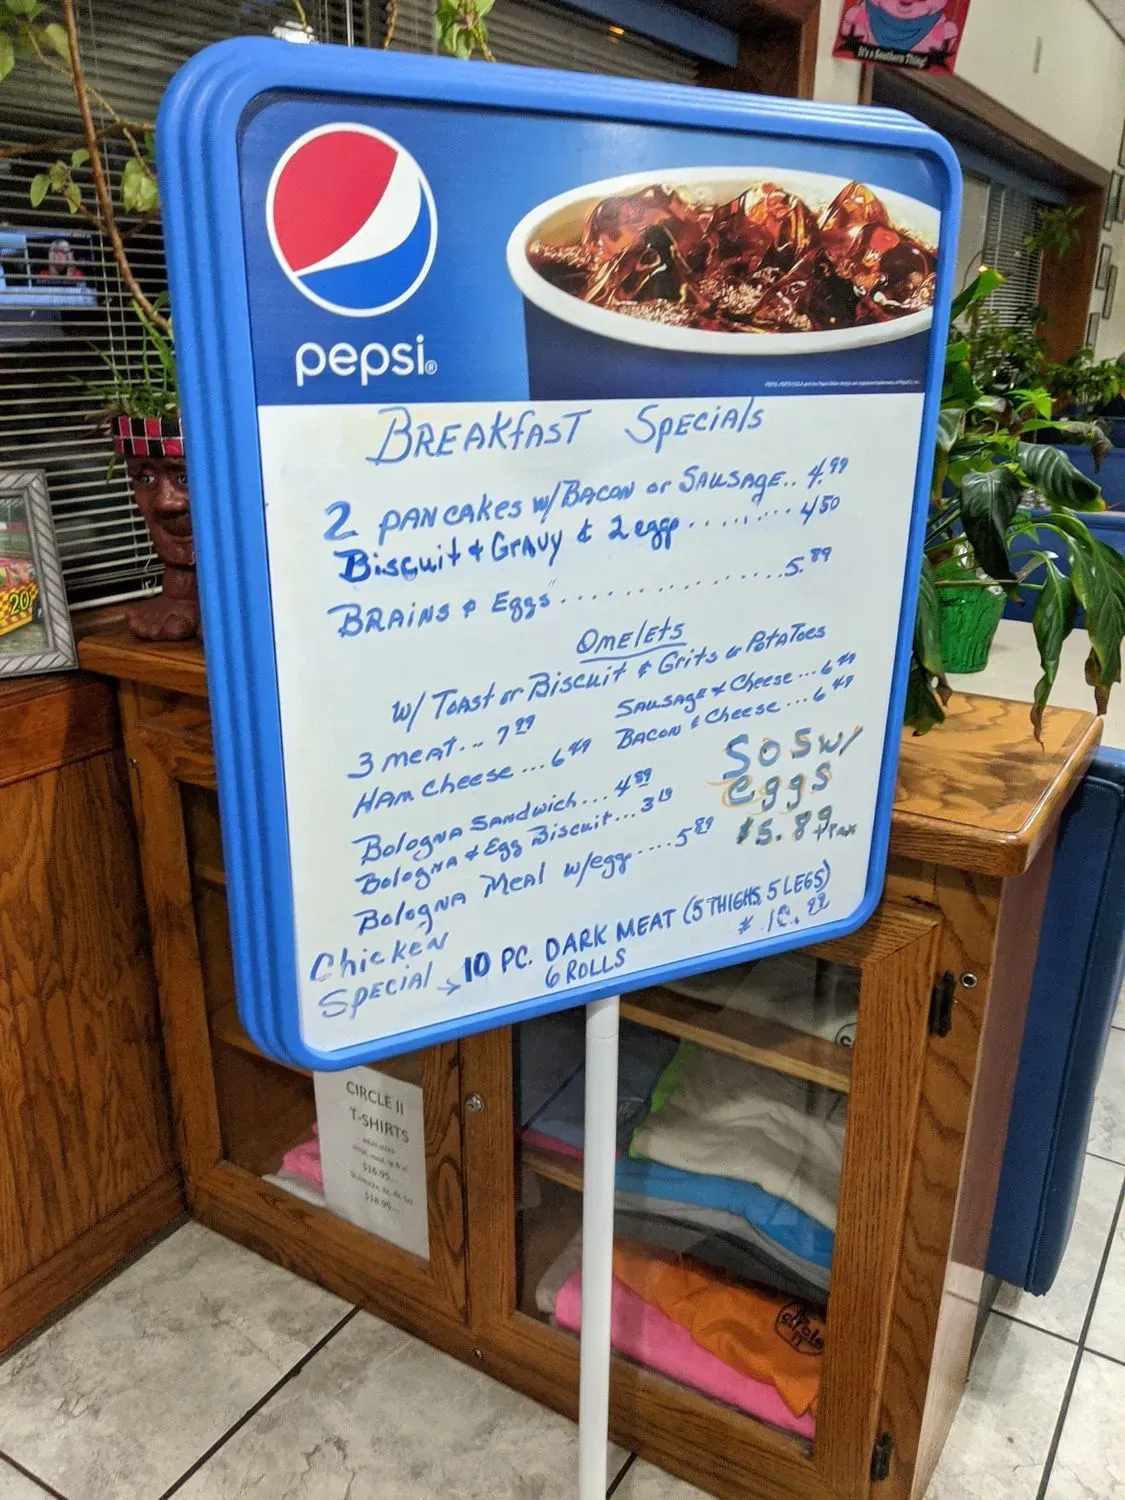 It's a Southern Thing!
pepsi®
BREAKfAST SPecials
2 PANCAKES w/BACON or SAUSAGE.. 4.99
Biscuit & GRAVY & 2 eggs ........ 4.50
BRAINS & Eggs ............ 5.89
OmeletS
w/ TOAST or Biscuit & Grits or PotaToes
3 meat... 7.99
SAUSAGE & Cheese ... 6.49
HAM Cheese ... 6.49
BACON & Cheese ... 6.49
Bologna Sandwich ... 4.89
SOS w/
eggs
$5.89
+TAX
Bologna & Egg Biscuit ... 3.19
Bologna Meal w/egg .... 5.89
Chicken
SPECIAL → 10 PC. DARK MEAT (5 THIGHS, 5 LEGS)
6 ROLLS
20
CIRCLE II
T-SHIRTS
$16.95
$18.95